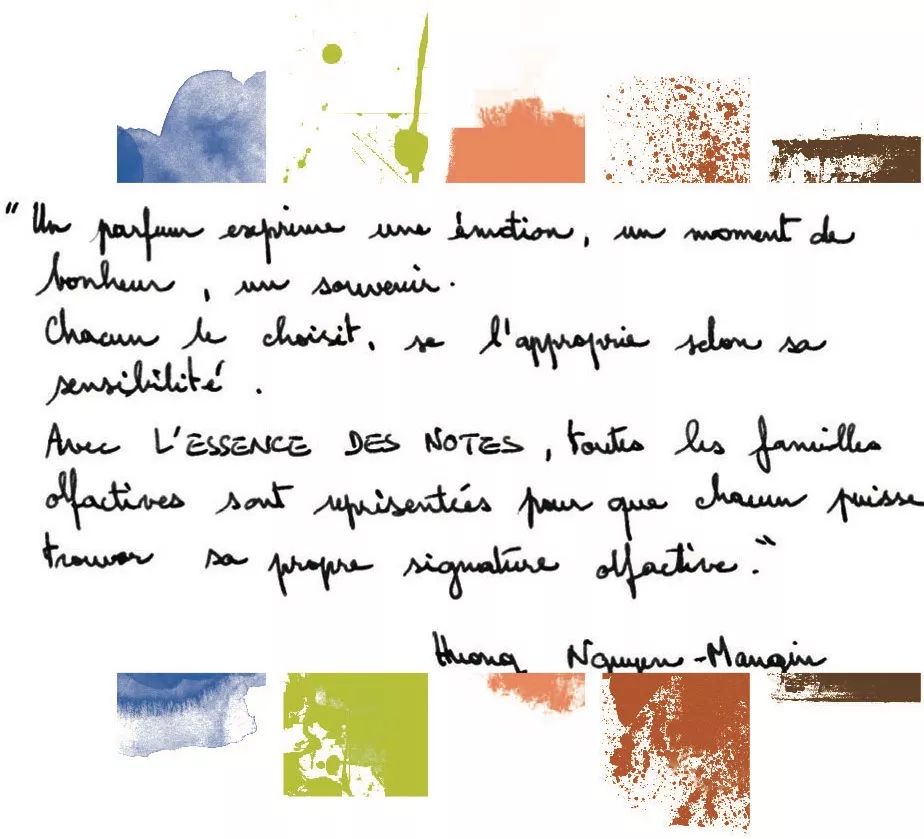 “Un parfum exprime une émotion, un moment de
bonheur, un souvenir.
Chacun le choisit, se l'approprie selon sa
sensibilité.
Avec L'ESSENCE DES NOTES, toutes les familles
olfactives sont représentées pour que chacun puisse
trouver sa propre signature olfactive.”
Huong Nguyen-Mangin